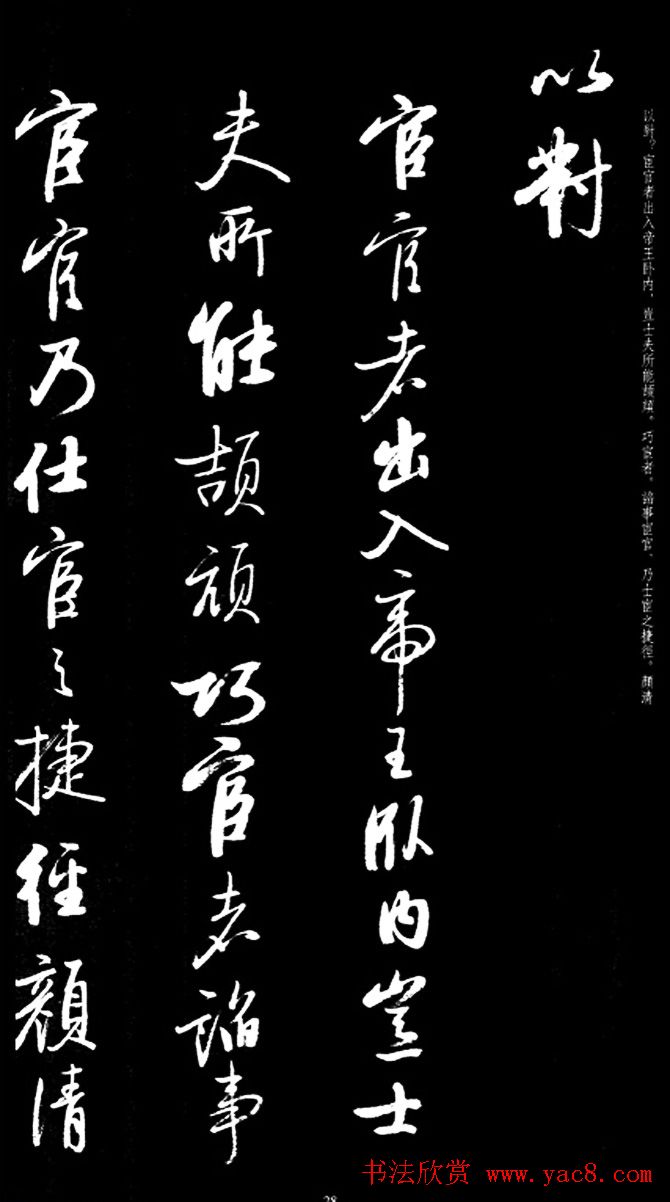 以對？宦官者出入帝王卧内，豈士夫所能頡頏。巧宦者，諂事宦官，乃士宦之捷徑。顏清
以對
宦官者出入帝王卧内豈士
夫所能頡頏巧宦者諂事
宦官乃仕宦之捷徑顏清
书法欣赏 www.yac8.com
28